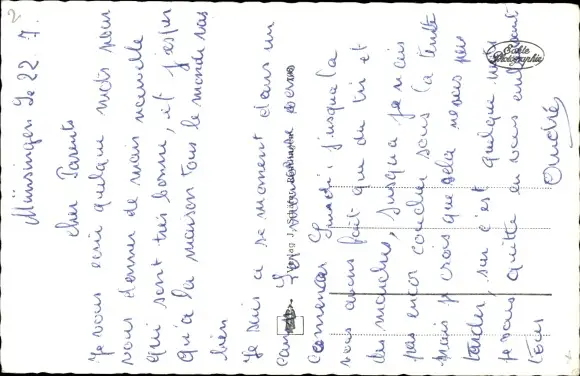 Münsingen Le 22. 7.
cher Parents
Je vous ecrit quelque mots pour
vous donner de mais nouvelle
qui sont très bonne, et j'espere
qu'a la maison tous le monde vas
bien
Je suis a se moment dans un
camp Les
comencer Lundi, jusque la
nous avons fait que du tir et
des manches, jusqua je ni
pas encor coucher sous la tente
mais je crois que sela ne vas pas
tarder, sur c'est quelque mots
je vous quitte en vous embrassent
tous André
Echte
Photographie
Verlag J.
2